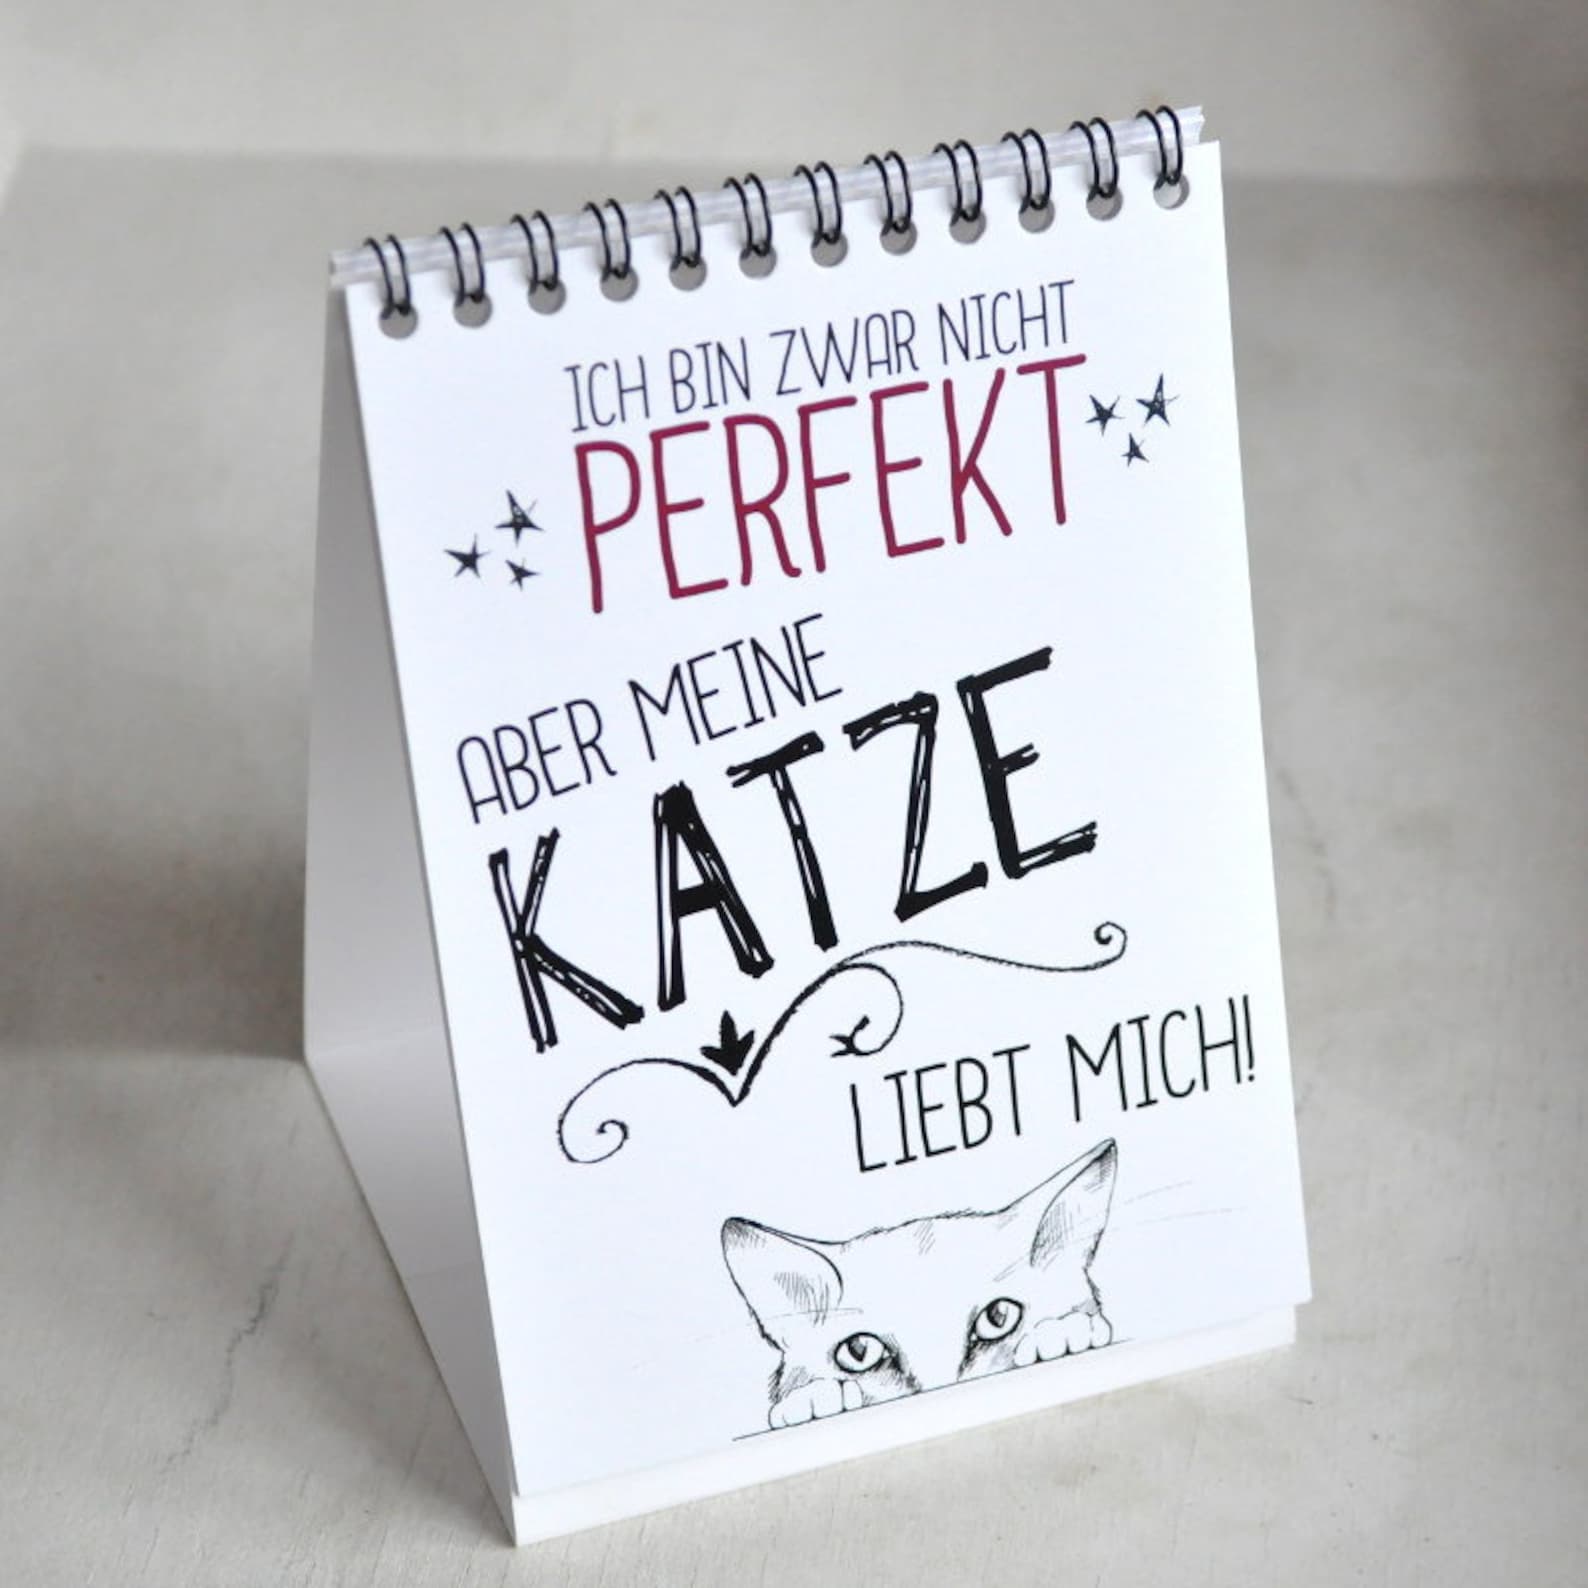 ICH BIN ZWAR NICHT
PERFEKT
ABER MEINE
KATZE
LIEBT MICH!